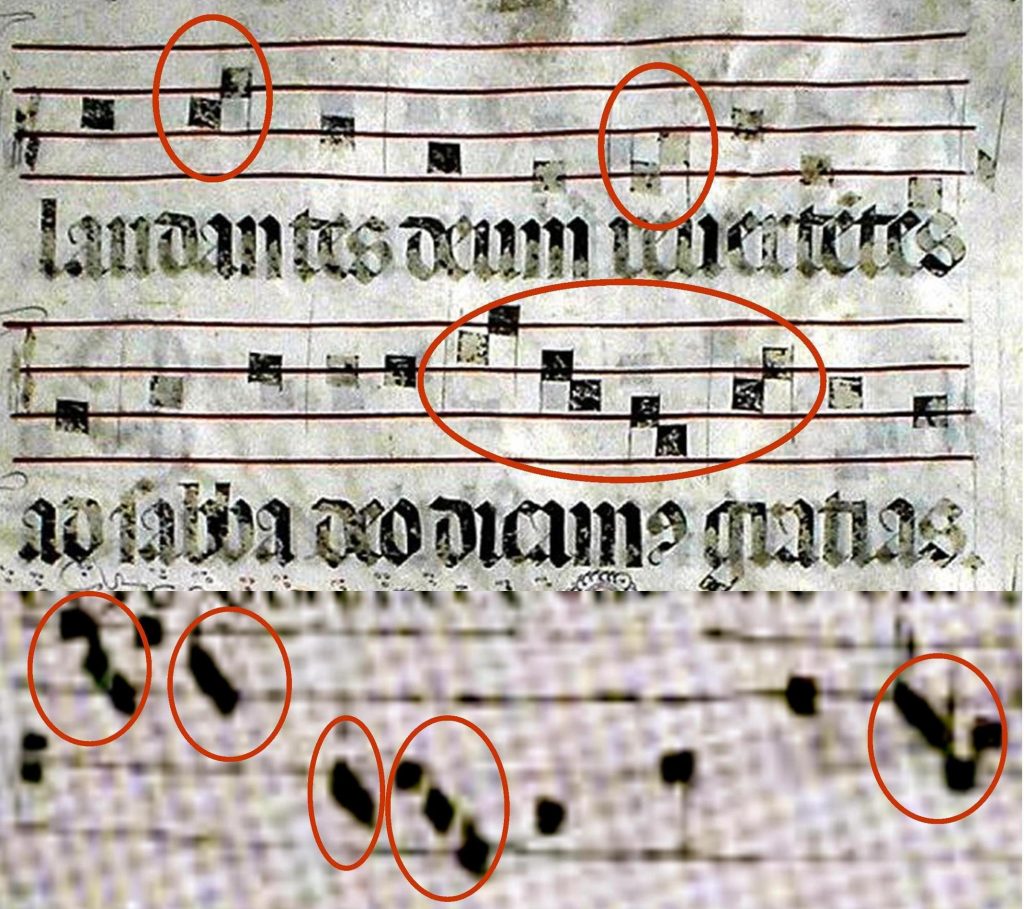 laudantes deum reuertētes
ad sabba deo dicamꝰ gratias.